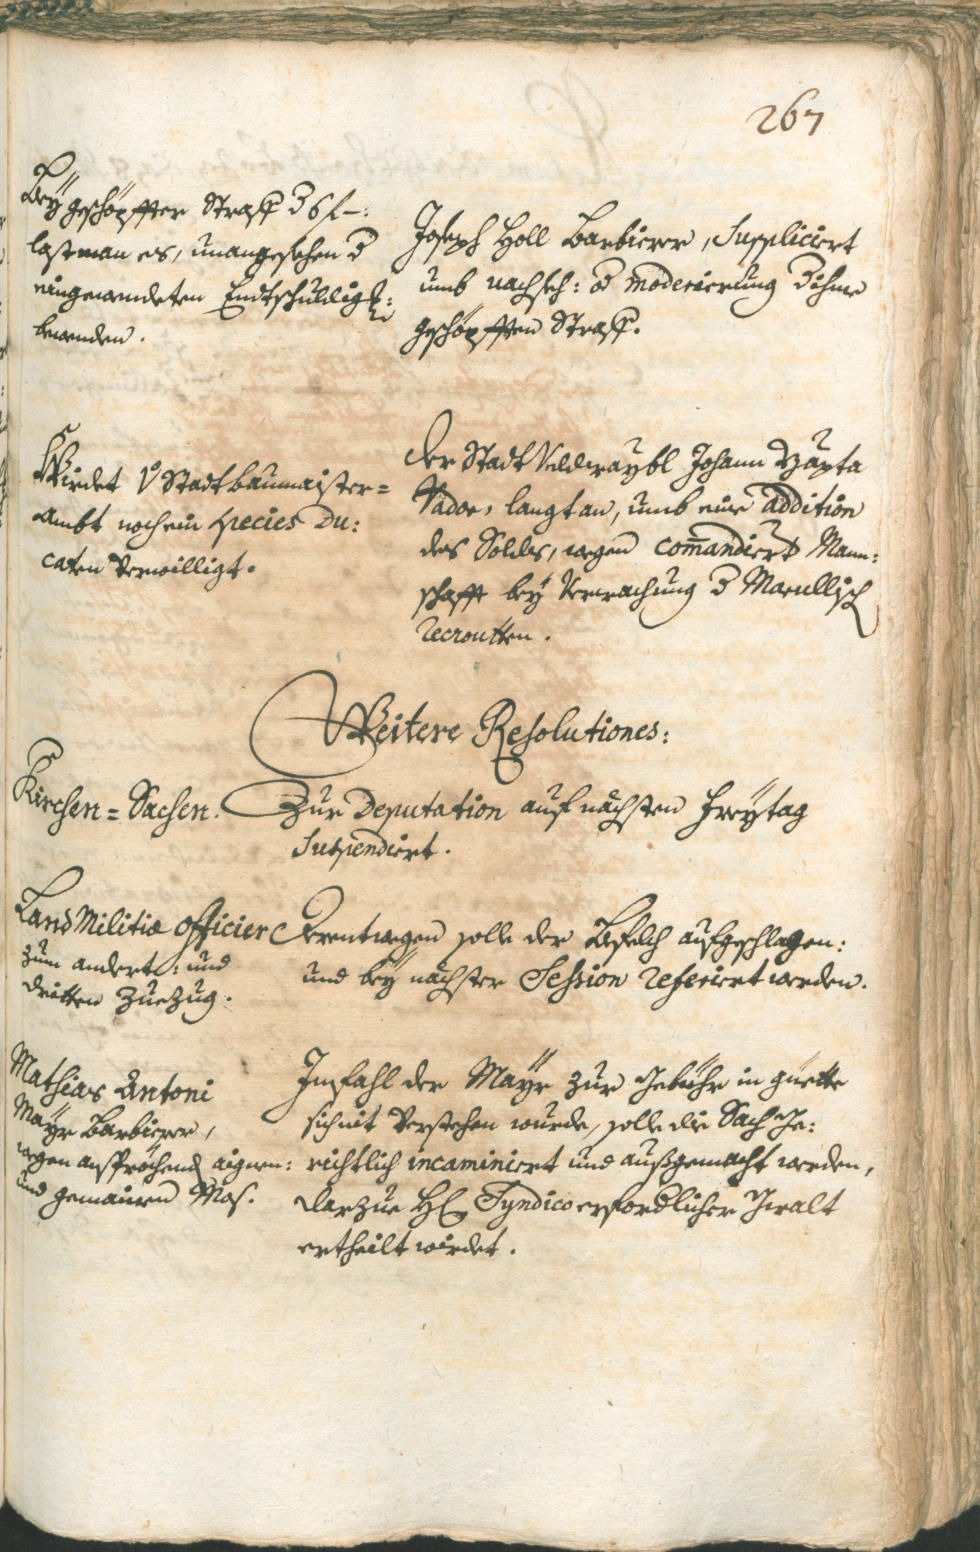 267
Bey geschöpffter Straff d 6 f –:
last man es, unangesehen d
eingewendeten Endtschuldig:
bewenden.
Joseph Holl Barbierer, Suppliciert
umb nachseh: od moderierung d ihme
geschöpfften Straff.
Wirdet Stadtbaumaister=
Ambt noch ein Species Du:
caten Verwilligt.
Der Stadt Veldwaybl Johann Bapta
langt an, umb eine addition
des Soldes, wegen commandiert Mann:
schafft bey Verwachung d
recroutten.
Weitere Resolutiones:
Kirchen=Sachen.
Zur Deputation auf nächsten Freytag
Suspendiert.
Land Militiæ Officier
zum andert: und
dritten Zuezug.
Derentwegen solle der Befelch aufgeschlagen:
und bey nächster Session referiert werden.
Mathias Antoni
Mayr Barbierer,
wegen ansprechend aignen:
und gemainen Mos.
Im fahl der Mayr zur Gebühr in güette
sich nit Verstehen wurde, solle die Sach Ge:
richtlich incaminiert und außgemacht werden,
darzue H Syndico erforderlicher Gwalt
ertheilt wirdet.